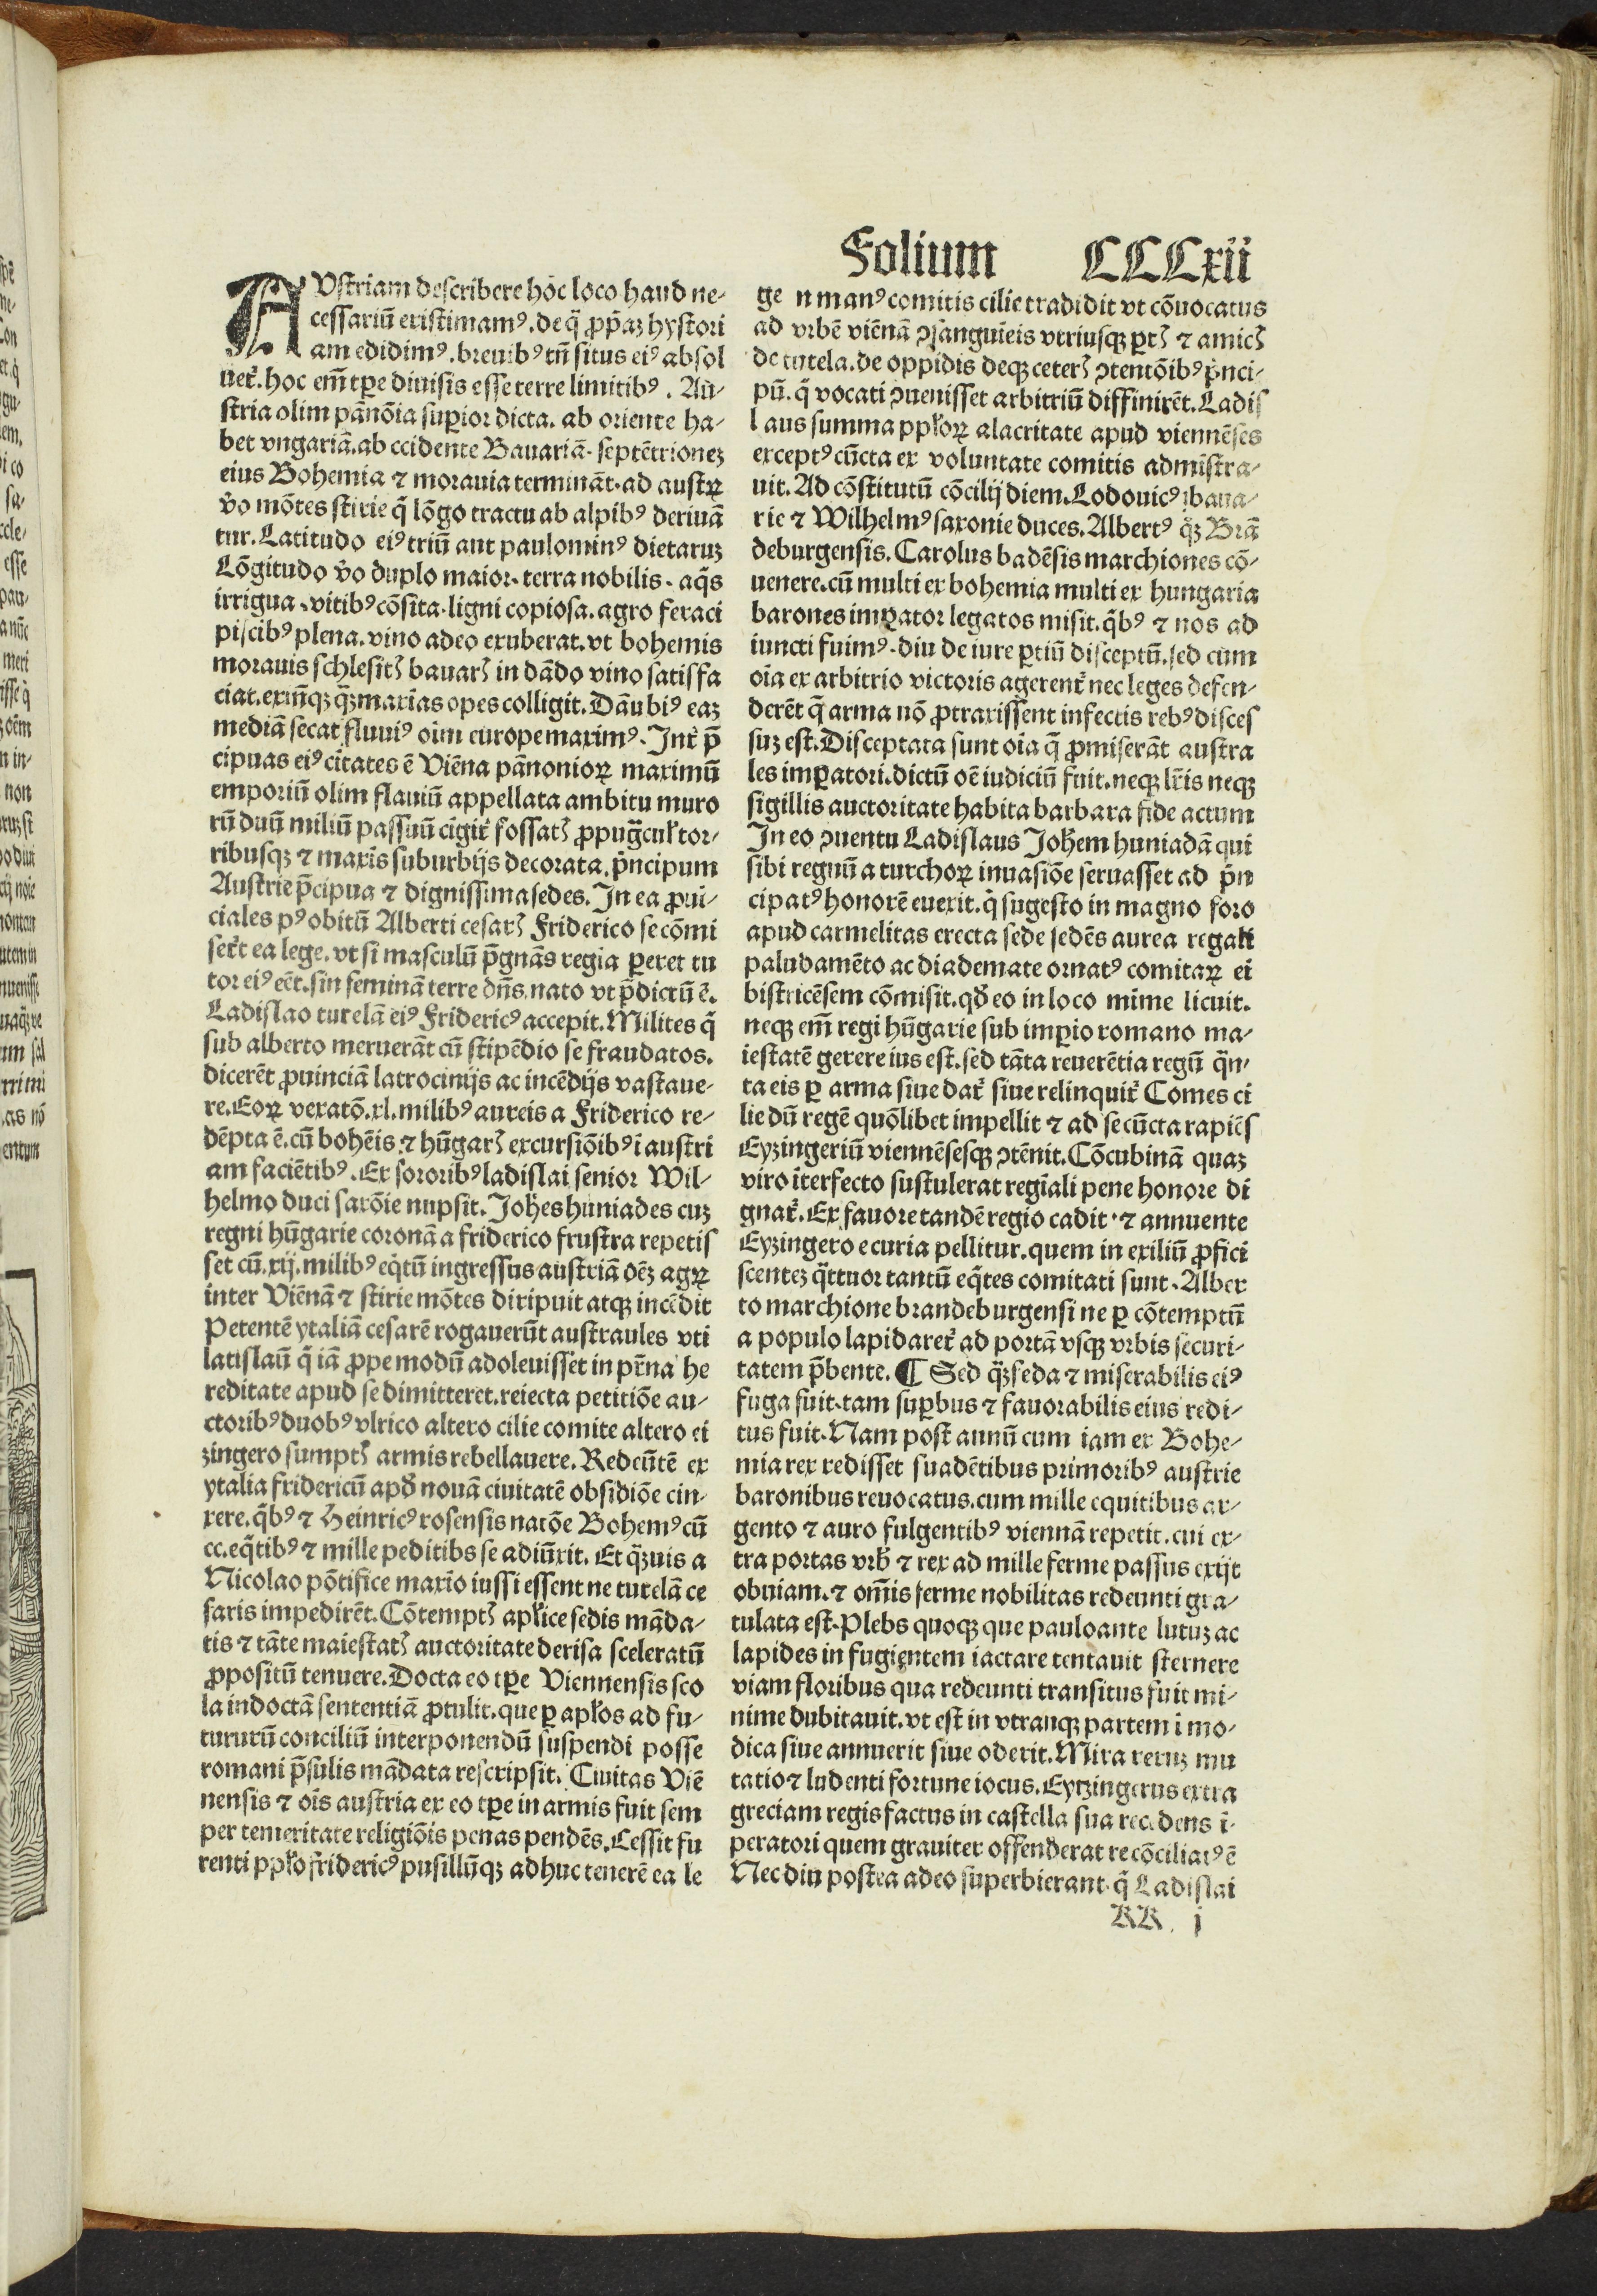 Folium CCCxii
AVstriam describere hoc loco haud ne-
cessariū existimamꝰ. de q̄ ꝓp̄az hystori
am edidimꝰ. breuibꝰ tn̄ situs eiꝰ absol
uet᷑. hoc em̄ tꝑe diuisis esse terre limitibꝰ. Au-
stria olim pānōia suꝑior dicta. ab oriente ha-
bet vngariā. ab ccidente Bauariā. septētrionez
eius Bohemia ⁊ morauia termināt. ad austꝝ
v̄o mōtes stirie q̄ lōgo tractu ab alpibꝰ deriuā
tur. Latitudo eiꝰ triū aut paulominꝰ dietaruz
Lōgitudo v̄o duplo maior. terra nobilis. aq̄s
irrigua. vitibꝰ cōsita. ligni copiosa. agro feraci
piscibꝰ plena. vino adeo exuberat. vt bohemis
morauis schlesitꝭ bauarꝭ in dādo vino satisfa
ciat. exin̄qꝫ q̄ꝫ maxīas opes colligit. Dāubiꝰ eaz
mediā secat fluuiꝰ oim europe maximꝰ. Int᷑ p̄
cipuas eiꝰ ciūtates ē Viēna pānonioꝝ maximū
emporiū olim flauiū appellata ambitu muro
rū duū miliū passuū cīgit᷑ fossatꝭ ꝓpugcul᷑ tor-
ribusqꝫ ⁊ maxīs suburbijs decorata. p̄ncipum
Austrie p̄cipua ⁊ dignissima sedes. In ea ꝓui-
ciales pꝰ obitū Alberti cesarꝭ Friderico se cōmi
ser̄t ea lege. vt si masculū p̄gnās regia ꝑeret tu
tor eiꝰ eēt. sin feminā terre dn̄s. nato vt p̄dictū ē.
Ladislao turelā eiꝰ Fridericꝰ accepit. Milites q̄
sub alberto meruerāt cū stipēdio se fraudatos.
dicerēt ꝓuinciā latrocinijs ac incēdijs vastaue-
re. Eoꝝ vexatō. xl. milibꝰ aureis a Friderico re-
dēpta ē. cū bohēis ⁊ hūgarꝭ excursiōibꝰ ī austri
am faciētibꝰ. Ex sororibꝰ ladislai senior Wil-
helmo duci saxōie nupsit. Johēs huniades cuz
regni hūgarie coronā a friderico frustra repetis
set cū. xij. milibꝰ eq̄tū ingressus austriā oēz agꝝ
inter Viēnā ⁊ stirie mōtes diripuit atqꝫ incēdit
Petentē ytaliā cesarē rogauerūt australes vti
latislaū q̄ iā ꝓpe modū adoleuisset in pr̄na he
reditate apud se dimitteret. reiecta petitiōe au-
ctoribꝰ duobꝰ vlrico altero cilie comite altero ei
zingero sumptꝭ armis rebellauere. Redeūtē ex
ytalia fridericū apd̄ nouā ciuitatē obsidiōe cin-
xere. q̄bꝰ ⁊ Heinricꝰ rosensis natōe Bohemꝰ cū
cc. eq̄tibꝰ ⁊ mille peditibs se adiūxit. Et q̄ꝫuis a
Nicolao pōtifice maxīo iussi essent ne tutelā ce
saris impedirēt. Cōtemptꝭ apl᷑ice sedis māda-
tis ⁊ tāte maiestatꝭ auctoritate derisa sceleratū
ꝓpositū tenuere. Docta eo tꝑe Viennensis sco
la indoctā sententiā ꝓtulit. que ꝑ apl᷑os ad fu-
tururū conciliū interponendū suspendi posse
romani p̄sulis mādata rescripsit. Ciuitas Viē
nensis ⁊ oīs austria ex eo tꝑe in armis fuit sem
per temeritate religiōis penas pendēs. Cessit fu
renti ppl᷑o fridericꝰ pusillūqꝫ adhuc tenerē ea le
ge n manꝰ comitis cilie tradidit vt cōuocatus
ad vrbē viēnā ↄsāguīeis vtriusqꝫ ꝑtꝭ ⁊ amicꝭ
de tutela. de oppidis deqꝫ ceterꝭ ↄtentōibꝰ p̄nci-
pū. q̄ vocati ↄuenisset arbitriū diffinirēt. Ladis
laus summa ppl᷑oꝝ alacritate apud viennēses
exceptꝰ cūcta ex voluntate comitis admīstra-
uit. Ad cōstitutū cōcilij diem. Lodouicꝰ baua-
rie ⁊ Wilhelmꝰ saxonie duces. Albertꝰ q̄ꝫ Brā
deburgensis. Carolus badēsis marchiones cō-
uenere. cū multi ex bohemia multi ex hungaria
barones imꝑator legatos misit. q̄bꝰ ⁊ nos ad
iuncti fuimꝰ. diu de iure ꝑtiū disceptū. sed cum
oīa ex arbitrio victoris agerent᷑ nec leges defen-
derēt q̄ arma nō ꝓtraxissent infectis rebꝰ disces
suz est. Disceptata sunt oīa q̄ ꝓmiserāt austra
les imꝑatori. dictū oē iudiciū fuit. neqꝫ lr̄is neqꝫ
sigillis auctoritate habita barbara fide actum
In eo ↄuentu Ladislaus Johēm huniadā qui
sibi regnū a turchoꝝ inuasiōe seruasset ad p̄n
cipatꝰ honorē euexit. q̄ sugesto in magno foro
apud carmelitas erecta sede sedēs aurea regali
paludamēto ac diademate ornatꝰ comitaꝝ ei
bistricēsem cōmisit. qd̄ eo in loco mīme licuit.
neqꝫ em̄ regi hūgarie sub imꝑio romano ma-
iestatē gerere ius est. sed tāta reuerētia regū q̄n-
ta eis ꝑ arma siue dat᷑ siue relinquit᷑ Comes ci
lie dū regē quōlibet impellit ⁊ ad se cūcta rapiēs
Eyzingeriū viennēsesqꝫ ↄtēnit. Cōcubinā quaz
viro īterfecto sustulerat regīali pene honore di
gnat᷑. Ex fauore tandē regio cadit. ⁊ annuente
Eyzingero e curia pellitur. quem in exiliū ꝓfici
scentez q̄ttuor tantū eq̄tes comitati sunt. Alber
to marchione brandeburgensi ne ꝑ cōtemptū
a populo lapidaret᷑ ad portā vsqꝫ vrbis securi-
tatem p̄bente. ¶ Sed q̄ꝫ feda ⁊ miserabilis eiꝰ
fuga fuit. tam suꝑbus ⁊ fauorabilis eius redi-
tus fuit. Nam post annū cum iam ex Bohe-
mia rex redisset suadētibus primoribꝰ austrie
baronibus reuocatus. cum mille equitibus ar-
gento ⁊ auro fulgentibꝰ viennā repetit. cui ex-
tra portas vrb̄ ⁊ rex ad mille ferme passus exijt
obuiam. ⁊ om̄is ferme nobilitas redeunti gra-
tulata est. Plebs quoqꝫ que pauloante lutuz ac
lapides in fugientem iactare tentauit sternere
viam floribus qua redeunti transitus fuit mi-
nime dubitauit. vt est in vtranqꝫ partem īmo-
dica siue annuerit siue oderit. Mira reruz mu
tatio ⁊ ludenti fortune iocus. Eytzingerus extra
greciam regis factus in castella sua recedens ī-
peratori quem grauiter offenderat recōciliatꝰ ē
Nec diu postea adeo superbierant. q̄ Ladislai
KK i